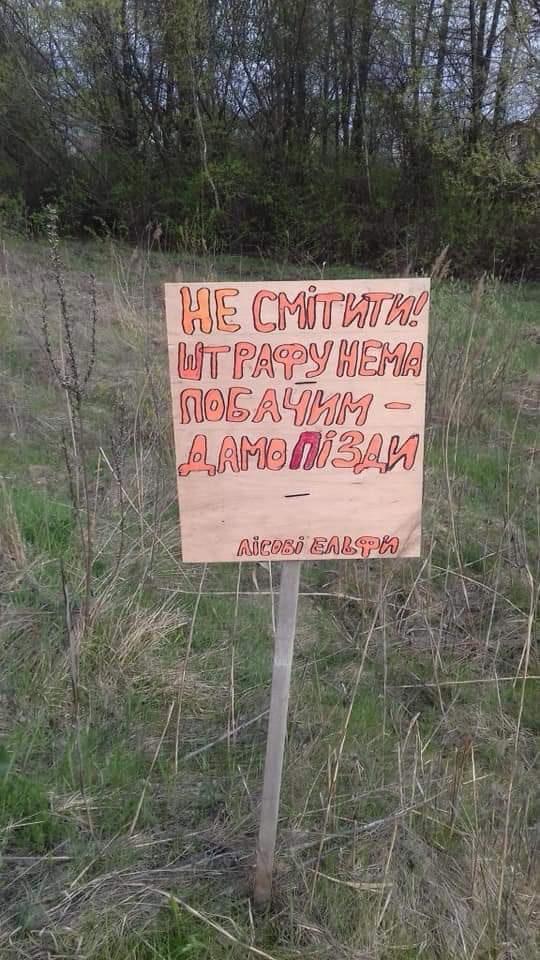 НЕ СМІТИТИ!
ШТРАФУ НЕМА
ПОБАЧИМ -
ДАМО ПІЗДИ
ЛІСОВІ ЕЛЬФИ